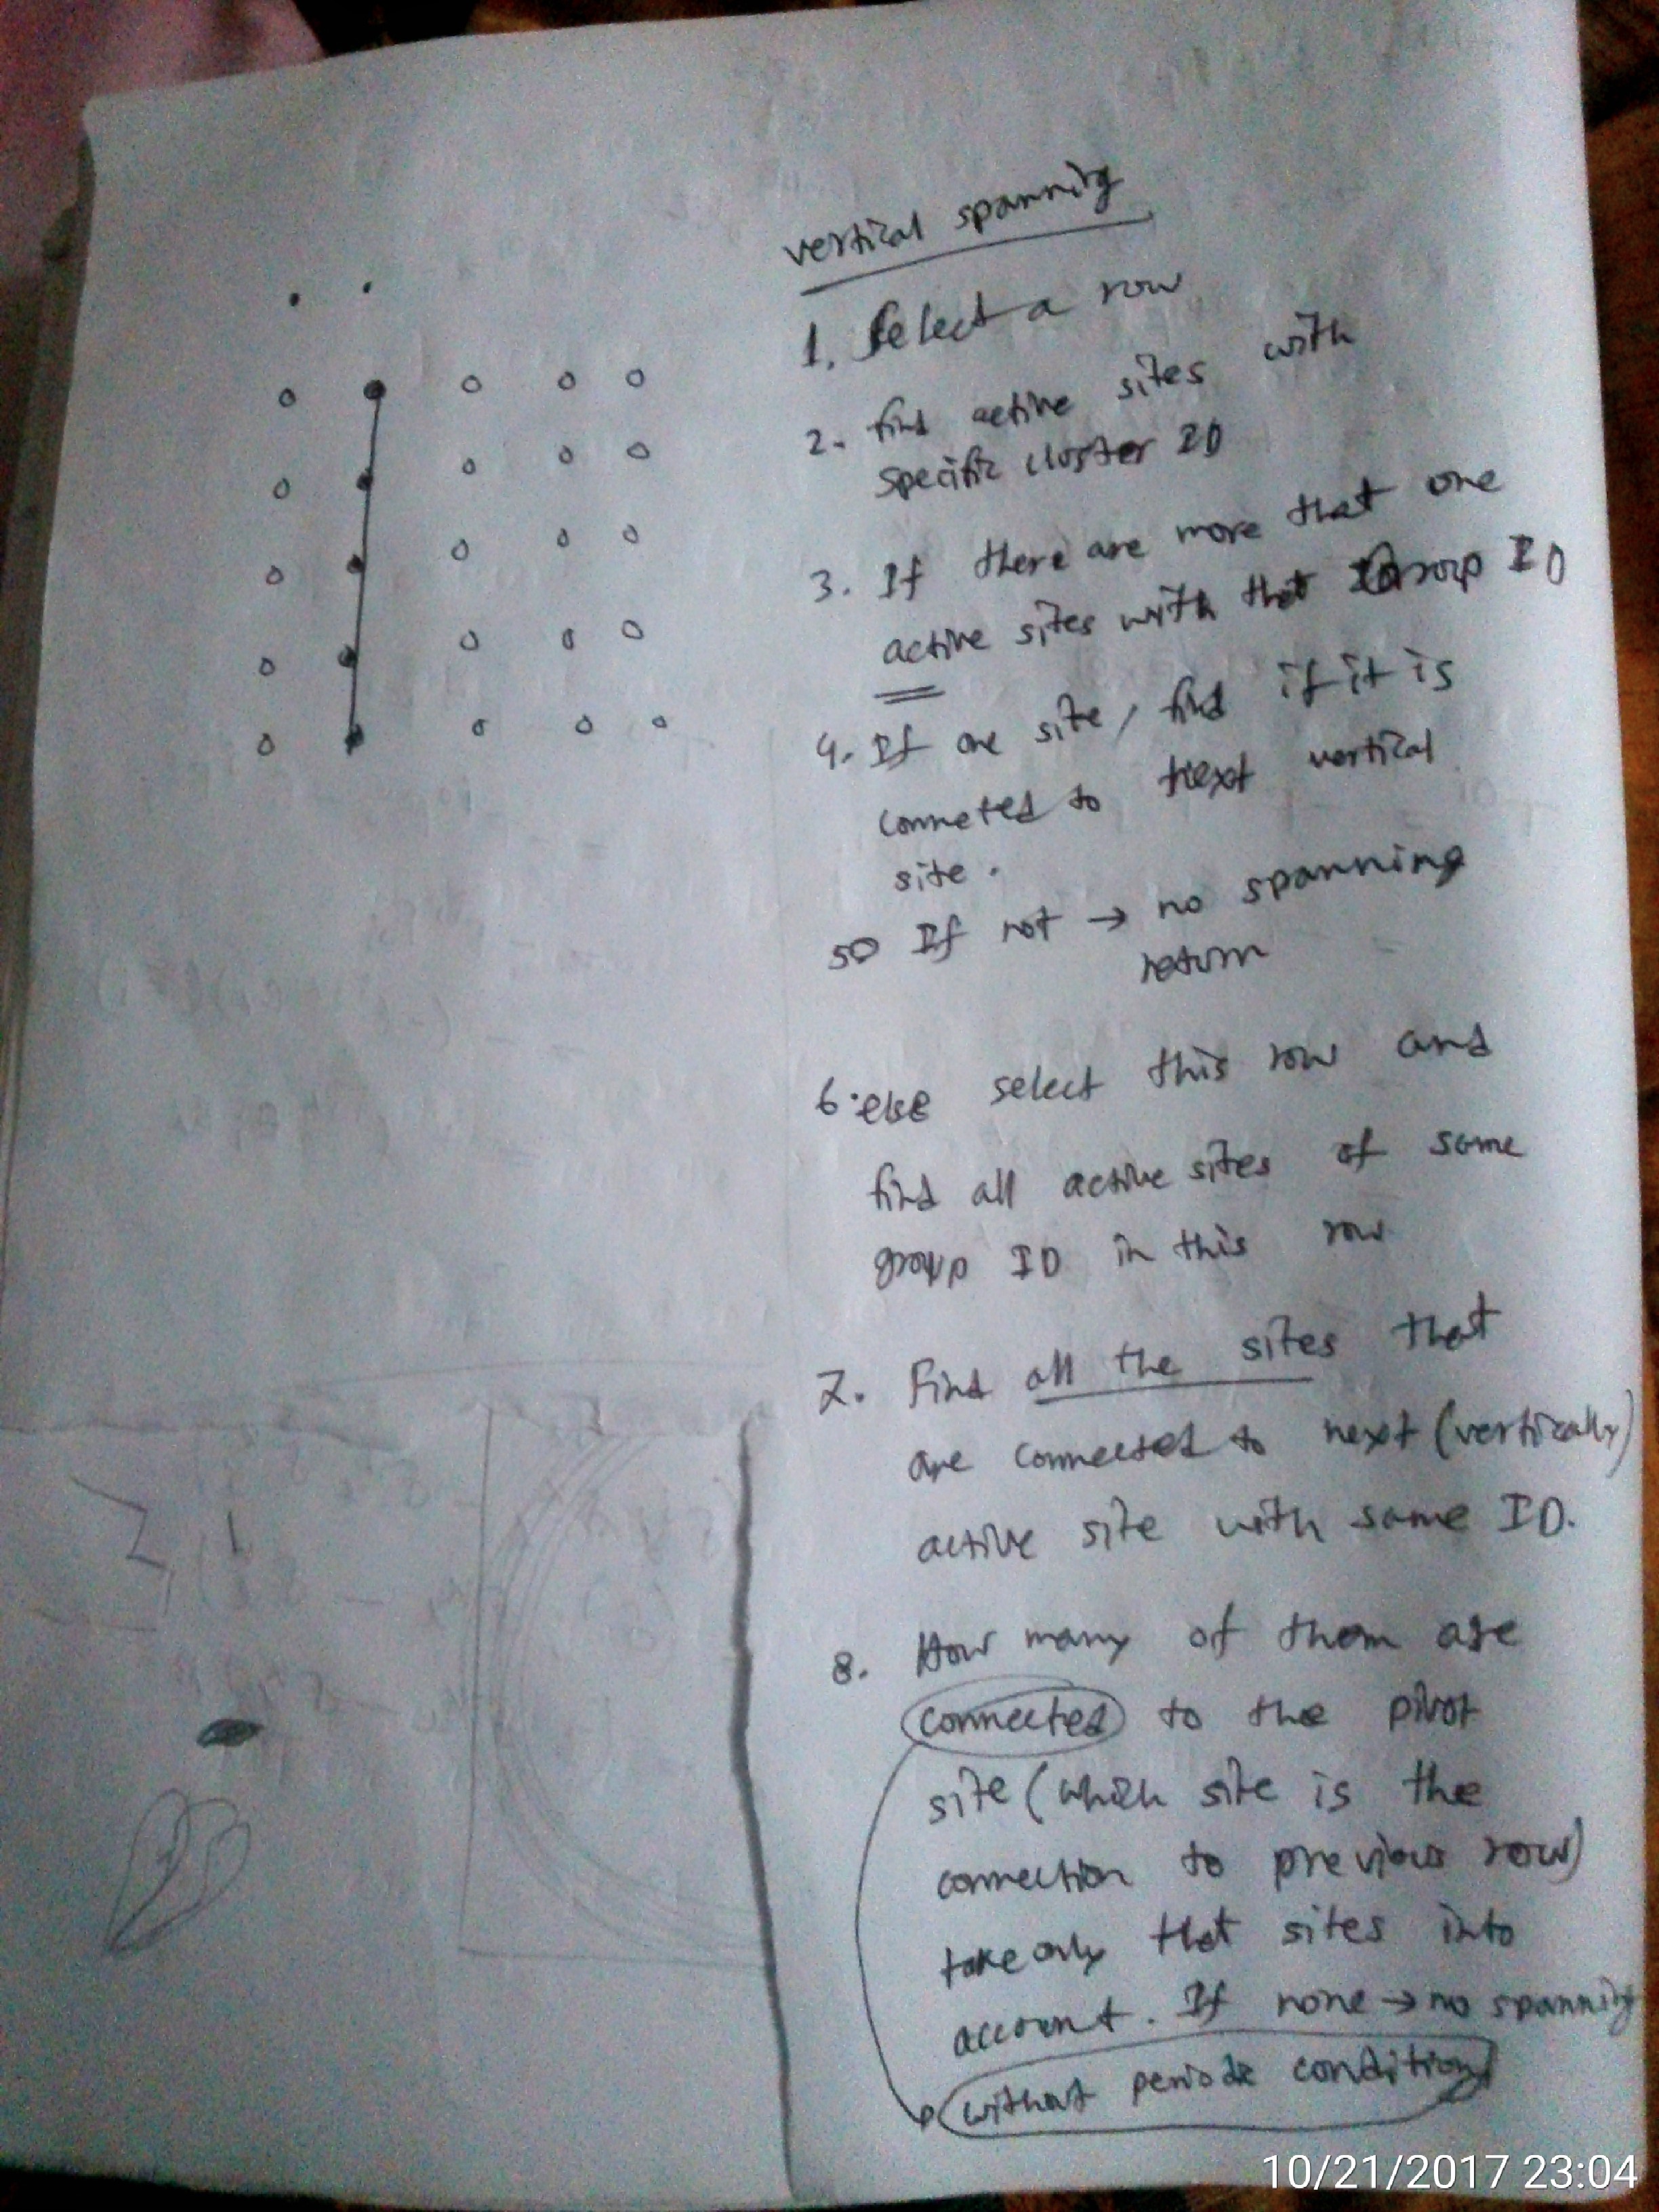 vertical spanning
1. Select a row
2. find active sites with
specific cluster ID
3. If there are more that one
active sites with that Group ID
4. If one site, find if it is
conneted to next vertical
site.
50 If not → no spanning
return
6. else select this row and
find all active sites of same
group ID in this row
7. Find all the sites that
are connected to next (vertically)
active site with same ID.
8. How many of them are
connected to the pivot
site (which site is the
connection to previous row)
take only that sites into
account. If none → no spanning
without periodic condition
10/21/2017 23:04